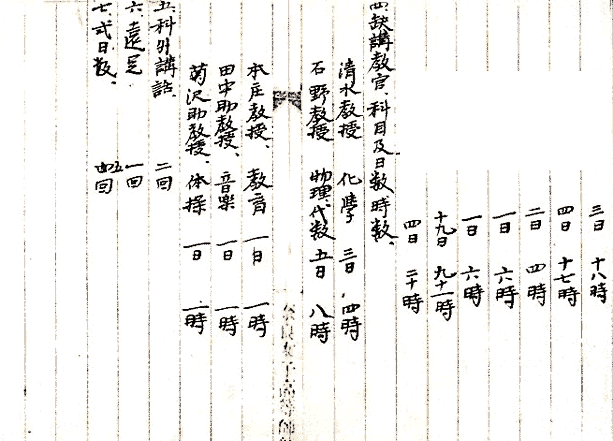 三日 十八時
四日 十七時
二日 四時
一日 六時
一日 六時
十九日 九十一時
四日 二十時
四、缺講教官、科目及日数時数、
清水教授 化學 三日、四時
石野教授 物理、代数 五日 八時
奈良女子高等師
本庄教授、教育 一日 一時
田中助教授、音楽 一日 一時
菊沢助教授、体操 一日 一時
五、科外講話、 二回
六、遠足 一回
七、式日数、 回